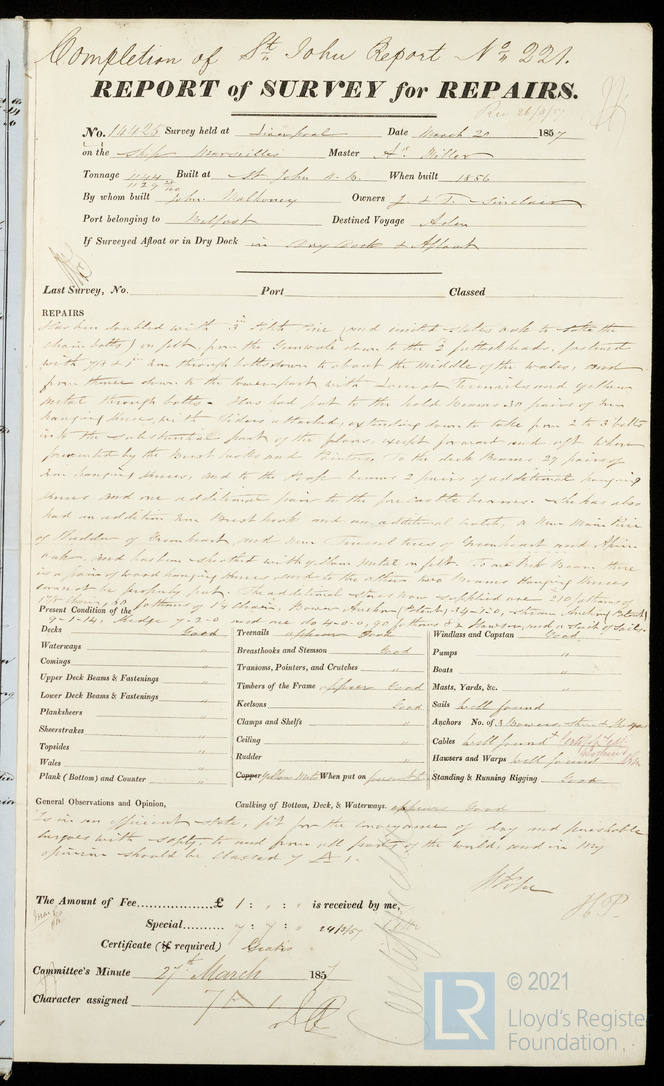 Completion of St John Report No 221.
REPORT of SURVEY for REPAIRS.
Rec 26/3/57
No. 14425 Survey held at Liverpool Date March 20 1857
on the Ship Marseilles Master A. Miller
Tonnage 1144 Built at St John N.B. When built 1856
1129
By whom built John Mulhoney Owners J. & T. Sinclair
Port belonging to Belfast Destined Voyage Aden
If Surveyed Afloat or in Dry Dock in Dry Dock & Afloat
Last Survey, No. Port Classed
REPAIRS
Has been doubled with 3 in Pitch Pine (and United States oak to take the
chain bolts) on felt from the Gunwale down to the futtock heads, fastened
with 7/8 & 1 in through bolts down to about the middle of the wales, and
from thence down to the lower part with Locust Treenails and yellow
metal through bolts. Has had put to the hold Beams 30 pairs of Iron
hanging knees, with Riders attached, extending down to take from 2 to 3 bolts
into the substantial part of the floors, except forward and aft where
prevented by the Breast hooks and Pointers. To the deck Beams 27 pairs of
Iron hanging knees, and to the Poop beams 2 pairs of additional hanging
knees and one additional pair to the forecastle beams. She has also
had an addition Iron Breast hook and an additional hatch, a New Main Piece
of Rudder of Greenheart, and New Trussel trees of Greenheart and African
oak, and has been sheathed with yellow Metal on felt. To one Deck Beam there
is a pair of wood hanging knees, and to the other two Beams Hanging knees
cannot be properly put. The additional stores now supplied are 210 fathoms of
fathoms of Chain, Bower Anchor (Patent) 34-1-0, Stream Anchor (Patent)
9-1-14, Kedge 4-2-0 and one do 4-0-0, 90 fathoms Hawser, and a Suit of Sails.
Present Condition of the
Decks Good Treenails appears Good Windlass and Capstan Good
Waterways " Breasthooks and Stemson Good Pumps "
Comings " Transoms, Pointers, and Crutches " Boats "
Upper Deck Beams & Fastenings " Timbers of the Frame appear Good Masts, Yards, &c. "
Lower Deck Beams & Fastenings " Keelsons Good Sails well found
Planksheers " Clamps and Shelfs " Anchors No. of 3 Bowers
Sheerstrakes " Ceiling " Cables well found
Topsides " Rudder " Hawsers and Warps well found
Wales " Copper Yellow Metal When put on present Standing & Running Rigging Good
Plank (Bottom) and Counter "
General Observations and Opinion, Caulking of Bottom, Deck, & Waterways. appears Good
Is in an efficient state, fit for the conveyance of dry and perishable
cargoes with safety, to and from all parts of the world, and in my
opinion should be classed 7 A 1.
H.P.
The Amount of Fee £ 1 : " : " is received by me,
Special 7 : 7 : " 24/3/57
Certificate (if required) Gratis
Committee's Minute 27th March 1857
Character assigned 7 A 1
LR
© 2021
Lloyd's Register
Foundation